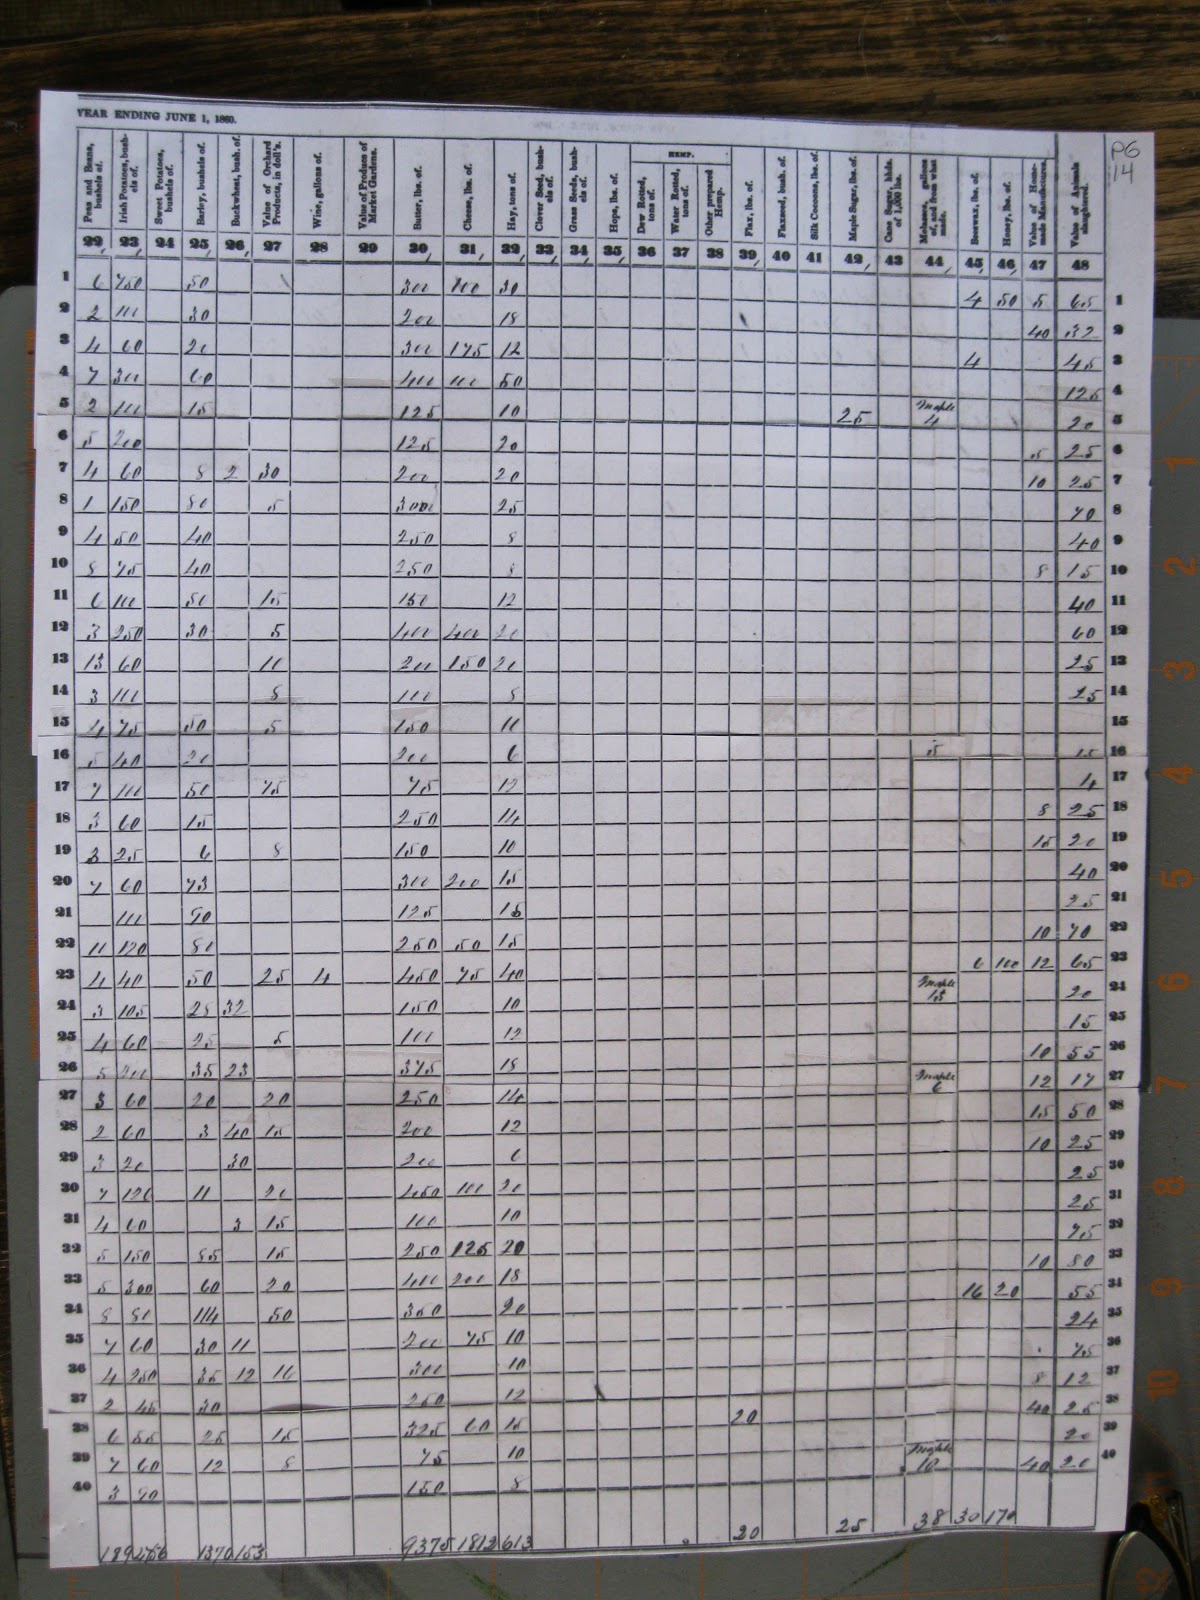 YEAR ENDING JUNE 1, 1860.
PG 14
HEMP.
Peas and Beans, bushels of. Irish Potatoes, bushels of. Sweet Potatoes, bushels of. Barley, bushels of. Buckwheat, bush. of. Value of Orchard Products, in doll's. Wine, gallons of. Value of Produce of Market Gardens. Butter, lbs. of. Cheese, lbs. of. Hay, tons of. Clover Seed, bushels of. Grass Seeds, bushels of. Hops, lbs. of. Dew Rotted, tons of. Water Rotted, tons of. Other prepared Hemp. Flax, lbs. of. Flaxseed, bush. of. Silk Cocoons, lbs. of. Maple Sugar, lbs. of. Cane Sugar, hhds. of 1,000 lbs. Molasses, gallons of, and from what made. Beeswax, lbs. of. Honey, lbs. of. Value of Home-made Manufactures. Value of Animals slaughtered.
22 23 24 25 26 27 28 29 30 31 32 33 34 35 36 37 38 39 40 41 42 43 44 45 46 47 48
1 6 50 300 30 4 50 5 65 1
2 2 100 30 200 18 40 32 2
3 4 60 20 300 175 12 4 45 3
4 7 300 60 400 100 50 125 4
5 2 100 15 125 10 25 Maple 4 20 5
6 5 200 125 20 5 25 6
7 4 60 8 2 30 200 20 10 25 7
8 1 150 5 25 70 8
9 4 50 40 250 8 40 9
10 8 75 40 250 8 8 15 10
11 6 100 50 15 150 12 40 11
12 3 250 30 5 400 400 20 60 12
13 13 60 10 200 150 20 25 13
14 3 100 8 100 8 25 14
15 4 75 50 5 150 10 15
16 5 40 20 200 6 5 15 16
17 7 100 50 75 75 12 4 17
18 3 60 15 250 14 8 25 18
19 3 25 6 8 150 10 15 20 19
20 7 60 73 300 200 15 40 20
21 100 90 125 15 25 21
22 11 120 250 50 15 10 70 22
23 4 40 50 25 4 450 75 40 6 100 12 65 23
24 3 105 25 32 150 10 Maple 20 24
25 4 60 25 5 100 12 15 25
26 5 200 35 23 375 18 10 55 26
27 3 60 20 20 250 14 Maple 6 12 17 27
28 2 60 3 40 15 200 12 15 50 28
29 3 20 30 200 6 10 25 29
30 7 120 11 20 450 100 20 25 30
31 4 60 3 15 100 10 25 31
32 5 150 15 250 125 20 75 32
33 5 300 60 20 400 200 18 10 80 33
34 8 80 114 50 20 16 20 55 34
35 7 60 30 11 200 75 10 24 35
36 4 250 35 12 300 10 75 36
37 2 45 30 250 12 8 12 37
38 6 55 25 15 325 60 15 20 40 25 38
39 7 60 12 8 75 10 20 39
40 3 90 150 8 Maple 10 40 20 40
189 1370 153 9375 1812 613 20 25 38 30 170